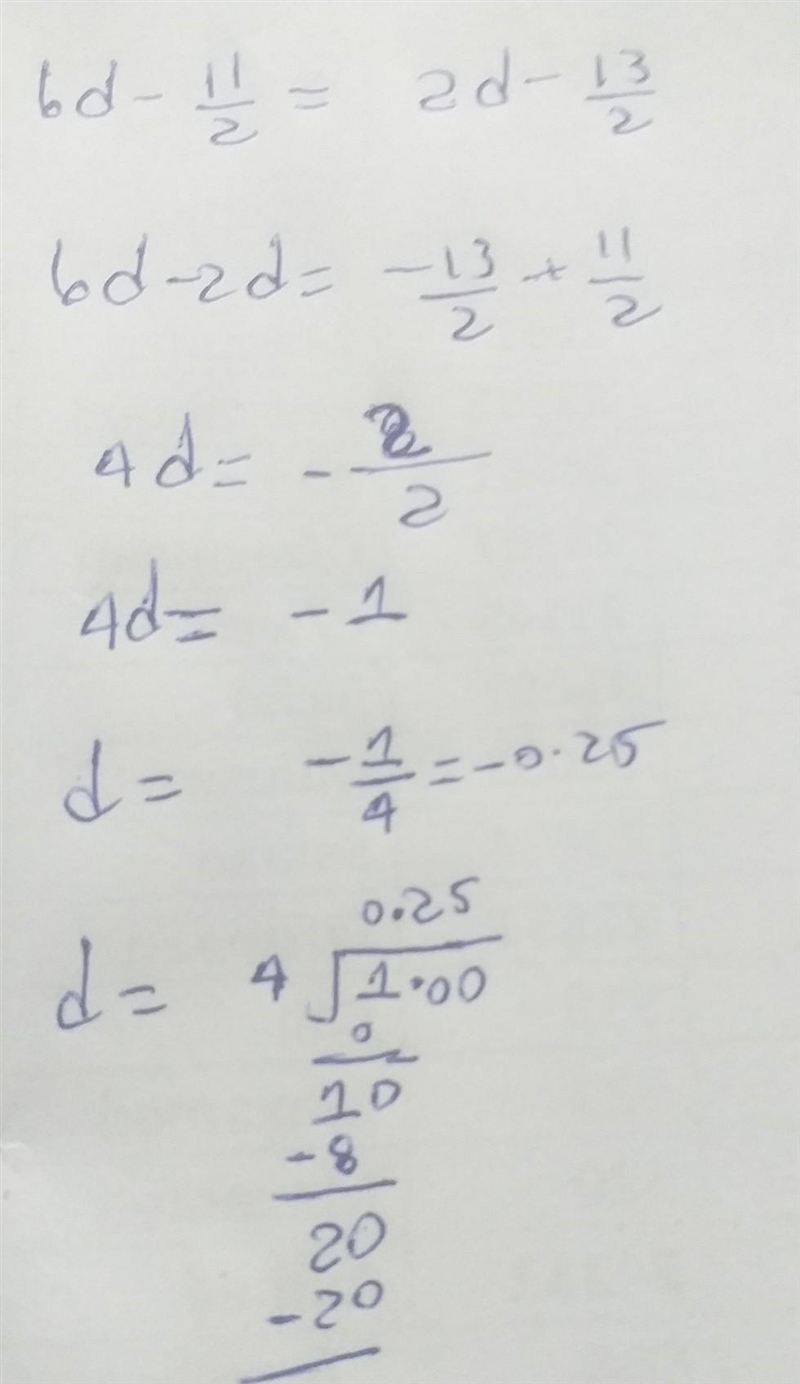 6d - 11/2 = 2d - 13/2
6d - 2d = -13/2 + 11/2
4d = - 2/2
4d = - 1
d = - 1/4 = -0.25
0.25
d = 4 √1.00
0
10
-8
20
-20